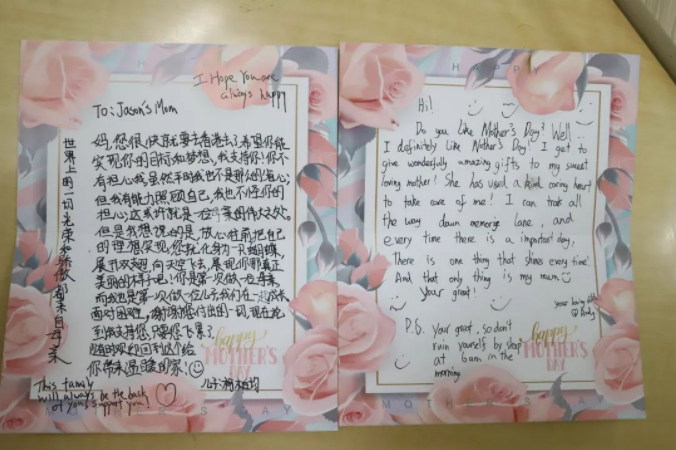 I Hope You are
always happy
To: Jason's Mom
世界上的一切光荣和骄傲都来自母亲
妈,您很快就要去香港去了希望你能
实现你的目标和梦想,我支持你!你不
有担心我虽然平时我也不是那么的省心;
但我有能力照顾自己,我也不怪你的
担心,这或许就是一位母亲的伟大之处。
但是我想说的是,放心往前把自己
的理想实现,您就化身为一只蝴蝶,
展开双翅,向天空飞去,展现你那真正
美丽的样子吧!你是第一次做一位母亲
而我也是第一次做一位儿子我们在一起成长
面对困难,谢谢您付出的一切,现在轮
到我支持您,只要您飞累了,
随时欢迎回到这个给
你带来温暖的家!
儿子:
This family
will always be the back
of you & support you!
happy
MOTHER'S
DAY
MOTHER'S DAY
HAPPY
Hi!
Do you like Mother's Day? Well
I definitely like Mother's Day! I get to
give wonderfully amazing gifts to my sweet
loving mother! She has used a kind caring heart
to take care of me! I can trot all
the way down memorize lane, and
every time there is a important day,
There is one thing that shines every time!
And that only thing is my mum
Your great!
your loving
P.G. your great, so don't
ruin yourself by sleep
at 6am in the
morning.
happy
MOTHER'S
DAY
MOTHER'S DAY